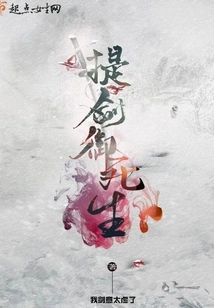 起点女生网
提剑御死生
著
我剑意太虚了